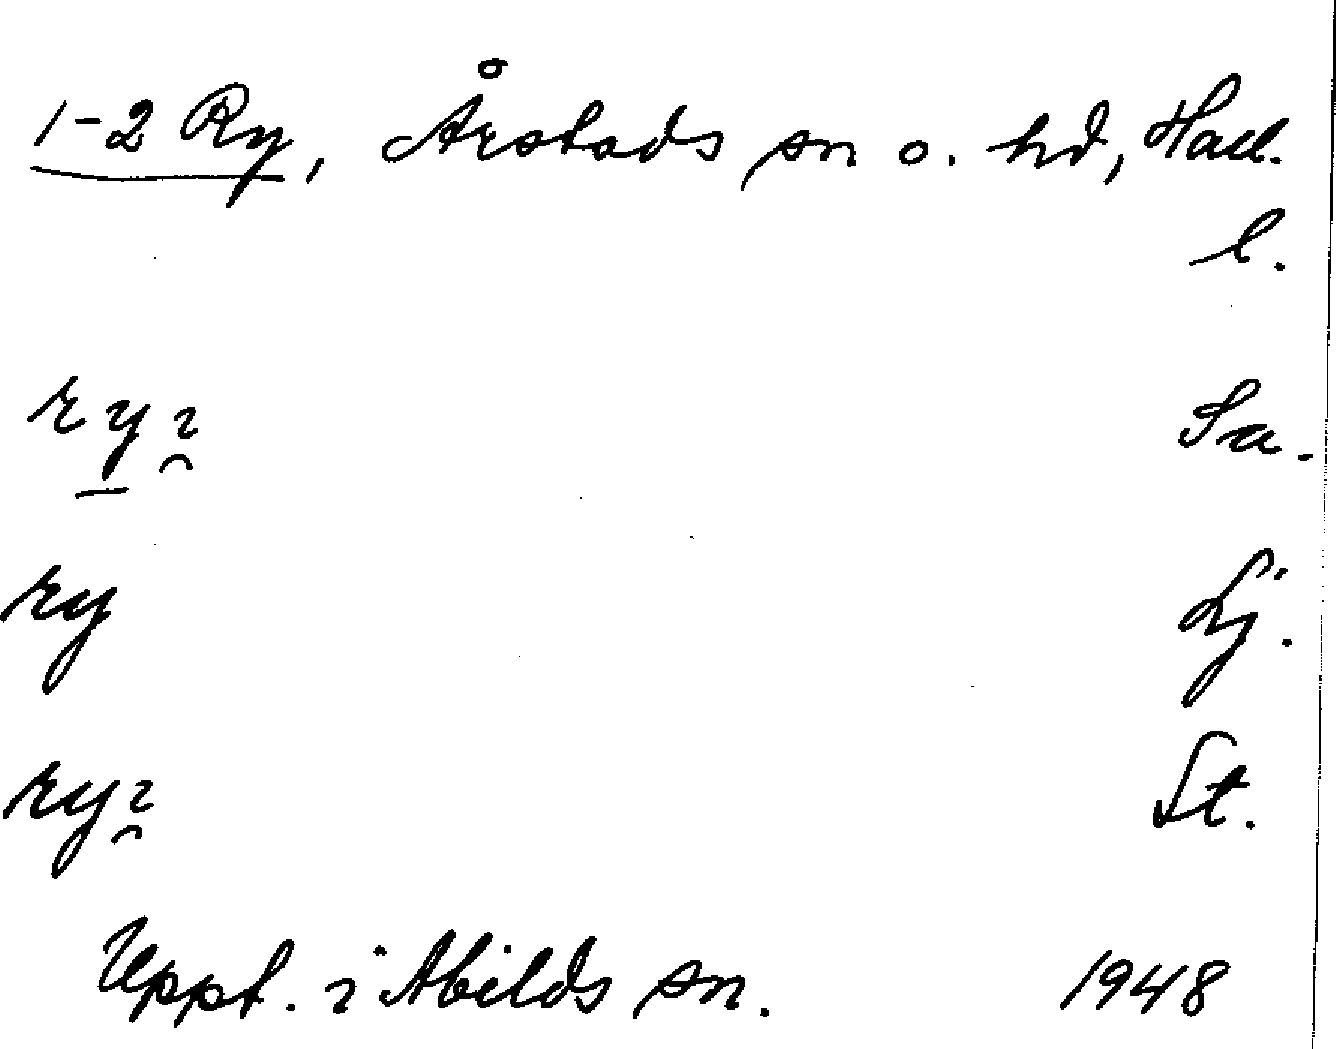 1-2 Ry, Årstads sn o. hd, Hall.
l.
ry Sa.
ry Lj.
ry St.
Uppt. i Abilds sn. 1948